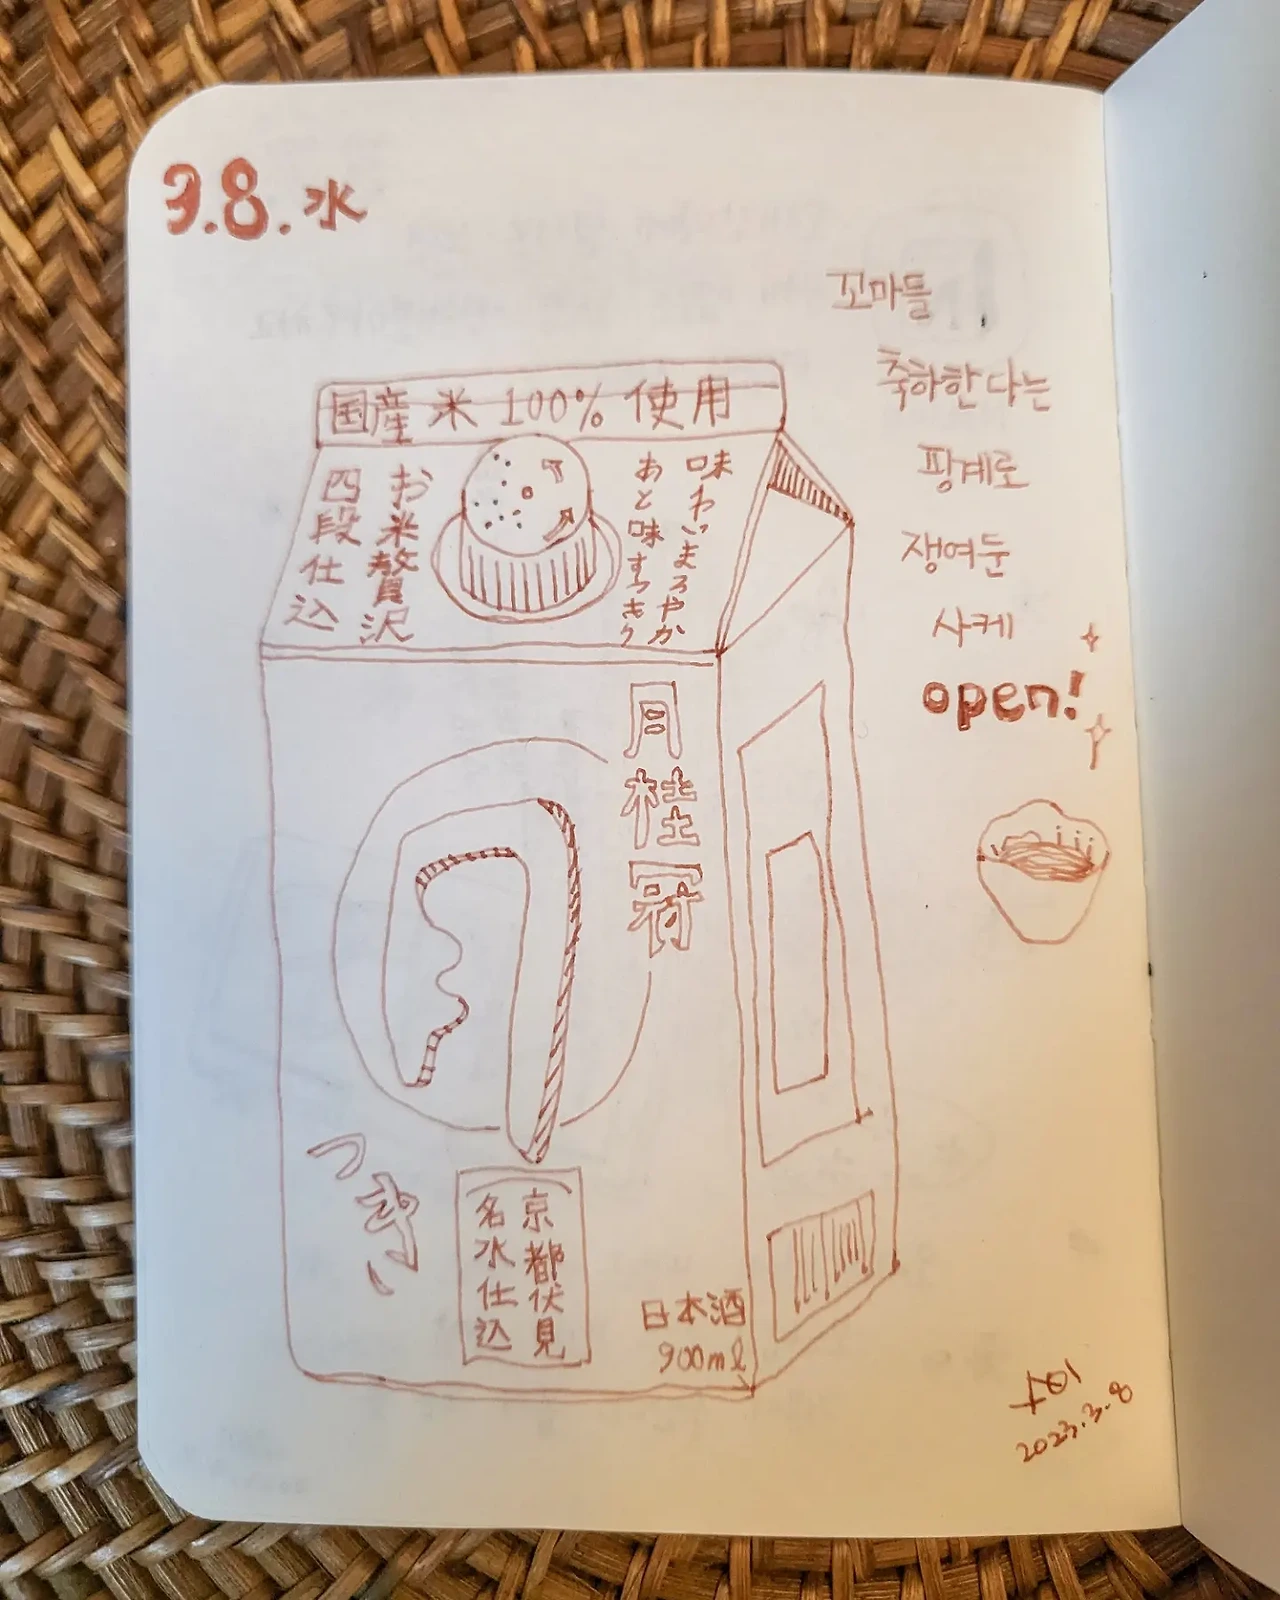 3.8.水
꼬마들
축하한다는
핑계로
쟁여둔
사케
open!
国産米100%使用
味わいまろやか
あと味すっきり
お米贅沢
四段仕込
月桂冠
つき
京都伏見
名水仕込
日本酒
900ml
2023.3.8